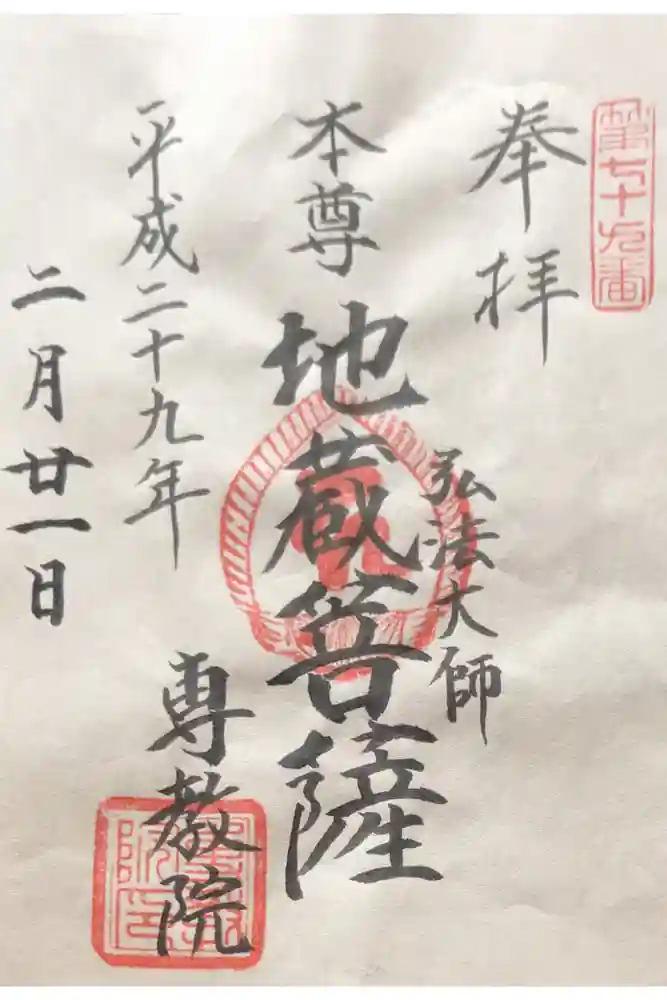 第七十九番
奉拝
弘法大師
本尊 地蔵菩薩
平成二十九年
二月廿一日
専教院